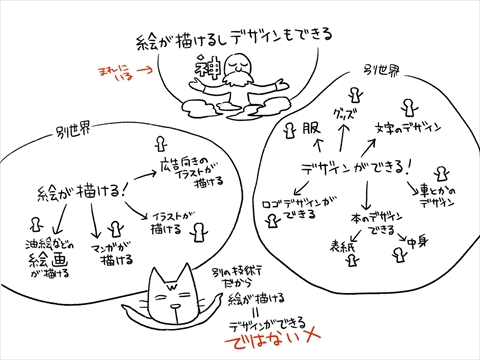 絵が描けるしデザインもできる
まれに
いる
神
別世界
絵が描ける!
広告向きの
イラストが
描ける
イラストが
描ける
マンガが
描ける
油絵などの
絵画
が描ける
別世界
デザインができる!
服
グッズ
文字のデザイン
車とかの
デザイン
本のデザイン
できる
表紙
中身
ロゴデザインが
できる
別の技術で
だから
絵が描ける
=
デザインができる
ではない×